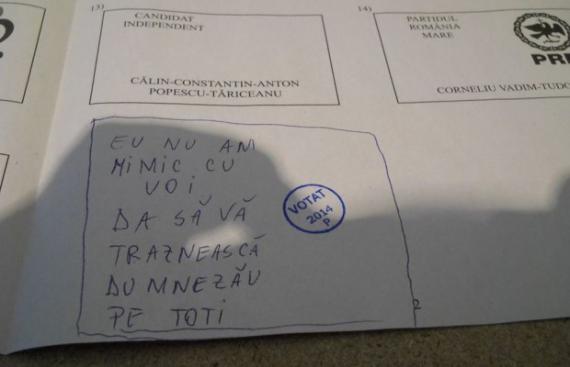 13)
CANDIDAT
INDEPENDENT
CĂLIN-CONSTANTIN-ANTON
POPESCU-TĂRICEANU
14)
PARTIDUL
ROMÂNIA
MARE
PR
CORNELIU VADIM-TUDO
EU NU AM
NIMIC CU
VOI
DA SĂ VĂ
TRAZNEASCĂ
DUMNEZĂU
PE TOTI
VOTAT
2014
P